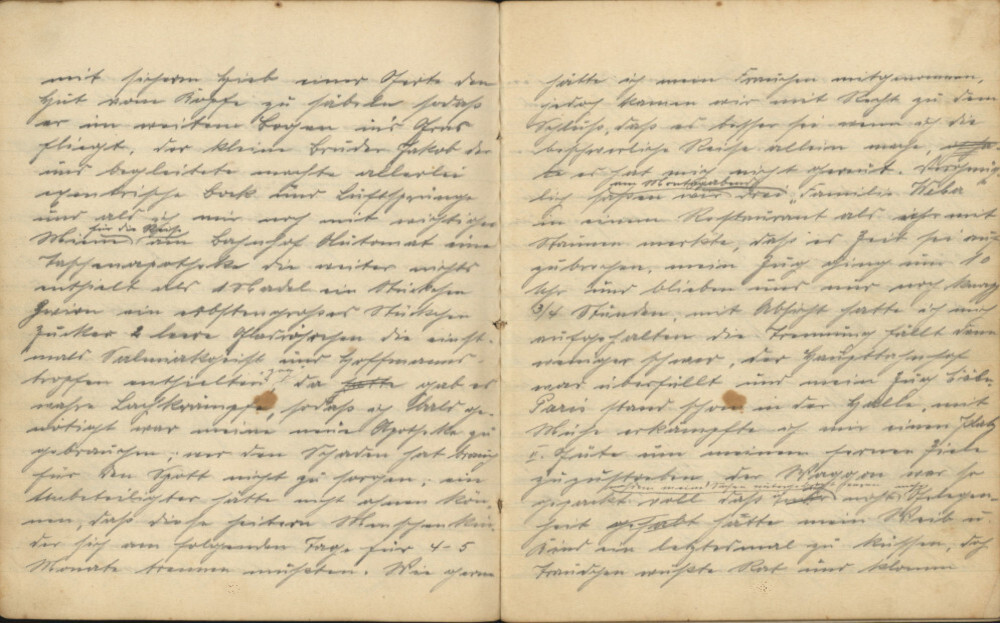 mit sicherm Hieb einer Gerte den
Hut vom Kopfe zu säbeln sodaß
er im weitem Bogen in's Gras
fliegt, der kleine Bruder Jakob der
uns begleitete machte allerlei
egentrische Bock und Luftsprünge
und als ich mir noch mit wichtiger
Miene für die Reise am Bahnhof Automat eine
Taschenapotheke die weiter nichts
enthielt als 1 Nadel ein Stückchen
Zwirn ein erbstengroßes Stückchen
Zucker 2 leere Glasröhrchen die einst-
mals Salmiakgeist und Hoffmanns-
tropfen enthielten zog da gab es
wahre Lachkrämpfe, sodaß ich als ge-
nötigt war meine neue Apotheke zu
gebrauchen; wer den Schaden hat brauch
für den Spott nicht zu sorgen; ein
Unbeteiligter hätte nicht ahnen kön-
nen, daß diese heitern Menschenkin-
der sich am folgenden Tage für 4-5
Monate trennen müßten. Wie gerne
hätte ich mein Frauchen mitgenommen,
jedoch kamen wir mit Recht zu dem
Schluß, daß es besser sei wenn ich die
beschwerliche Reise allein mache,
es hat mich nicht gereut. Vergnüg-
lich saßen am Montagabend wir drei „Familie
in einem Restaurant als ich mit
Staunen merkte, daß es Zeit sei auf-
zubrechen, mein Zug ging um 10
Uhr und blieben uns nur noch knap
3/4 Stunden; mit Absicht hatte ich mich
aufgehalten die Trennung fällt dann
weniger schwer, der Hauptbahnhof
war überfüllt und mein Zug Cöln-
Paris stand schon in der Halle, mit
Mühe erkämpfte ich mir einen Platz
u. heute um meinem fernen Ziele
zuzustreben der Waggon war so
gepankt voll daß nicht Gelegen-
heit gehabt hätte mein Weib u.
Kind ein letztesmal zu küssen, doch
Frauchen wußte Rat und klomm